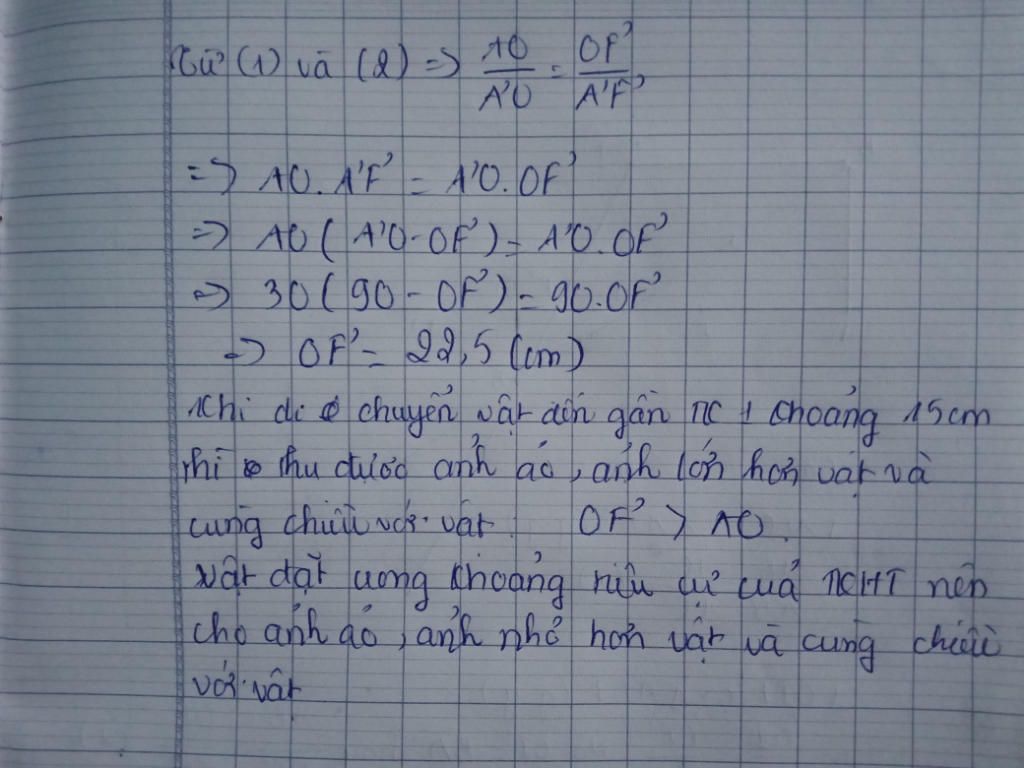 Từ (1) và (2) => AO/A'O = OF'/A'F'
=> AO.A'F' = A'O.OF'
=> AO(A'O-OF') = A'O.OF'
=> 30(90-OF') = 90.OF'
=> OF' = 22,5 (cm)
Khi di chuyển vật đến gần TK 1 khoảng 15cm
thì thu được ảnh ảo, ảnh lớn hơn vật và
cùng chiều với vật OF' > AO.
Vật đặt trong khoảng tiêu cự của TKHT nên
cho ảnh ảo, ảnh nhỏ hơn vật và cùng chiều
với vật